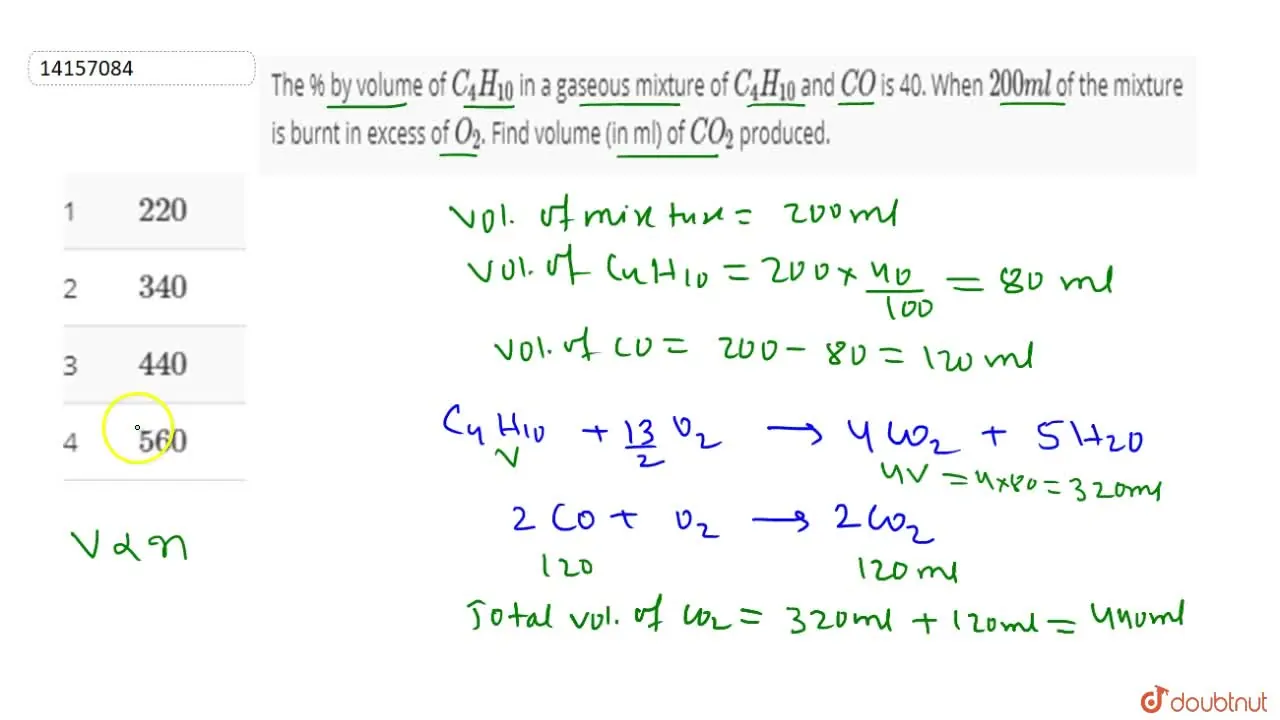 14157084
The % by volume of C₄H₁₀ in a gaseous mixture of C₄H₁₀ and CO is 40. When 200ml of the mixture
is burnt in excess of O₂. Find volume (in ml) of CO₂ produced.
1 220
2 340
3 440
4 560
V α n
Vol. of mixture = 200 ml
Vol. of C₄H₁₀ = 200 × 40/100 = 80 ml
Vol. of CO = 200 - 80 = 120 ml
C₄H₁₀ + 13/2 O₂ → 4CO₂ + 5H₂O
V 4V = 4×80 = 320ml
2CO + O₂ → 2CO₂
120 120 ml
Total vol. of CO₂ = 320ml + 120ml = 440ml
doubtnut